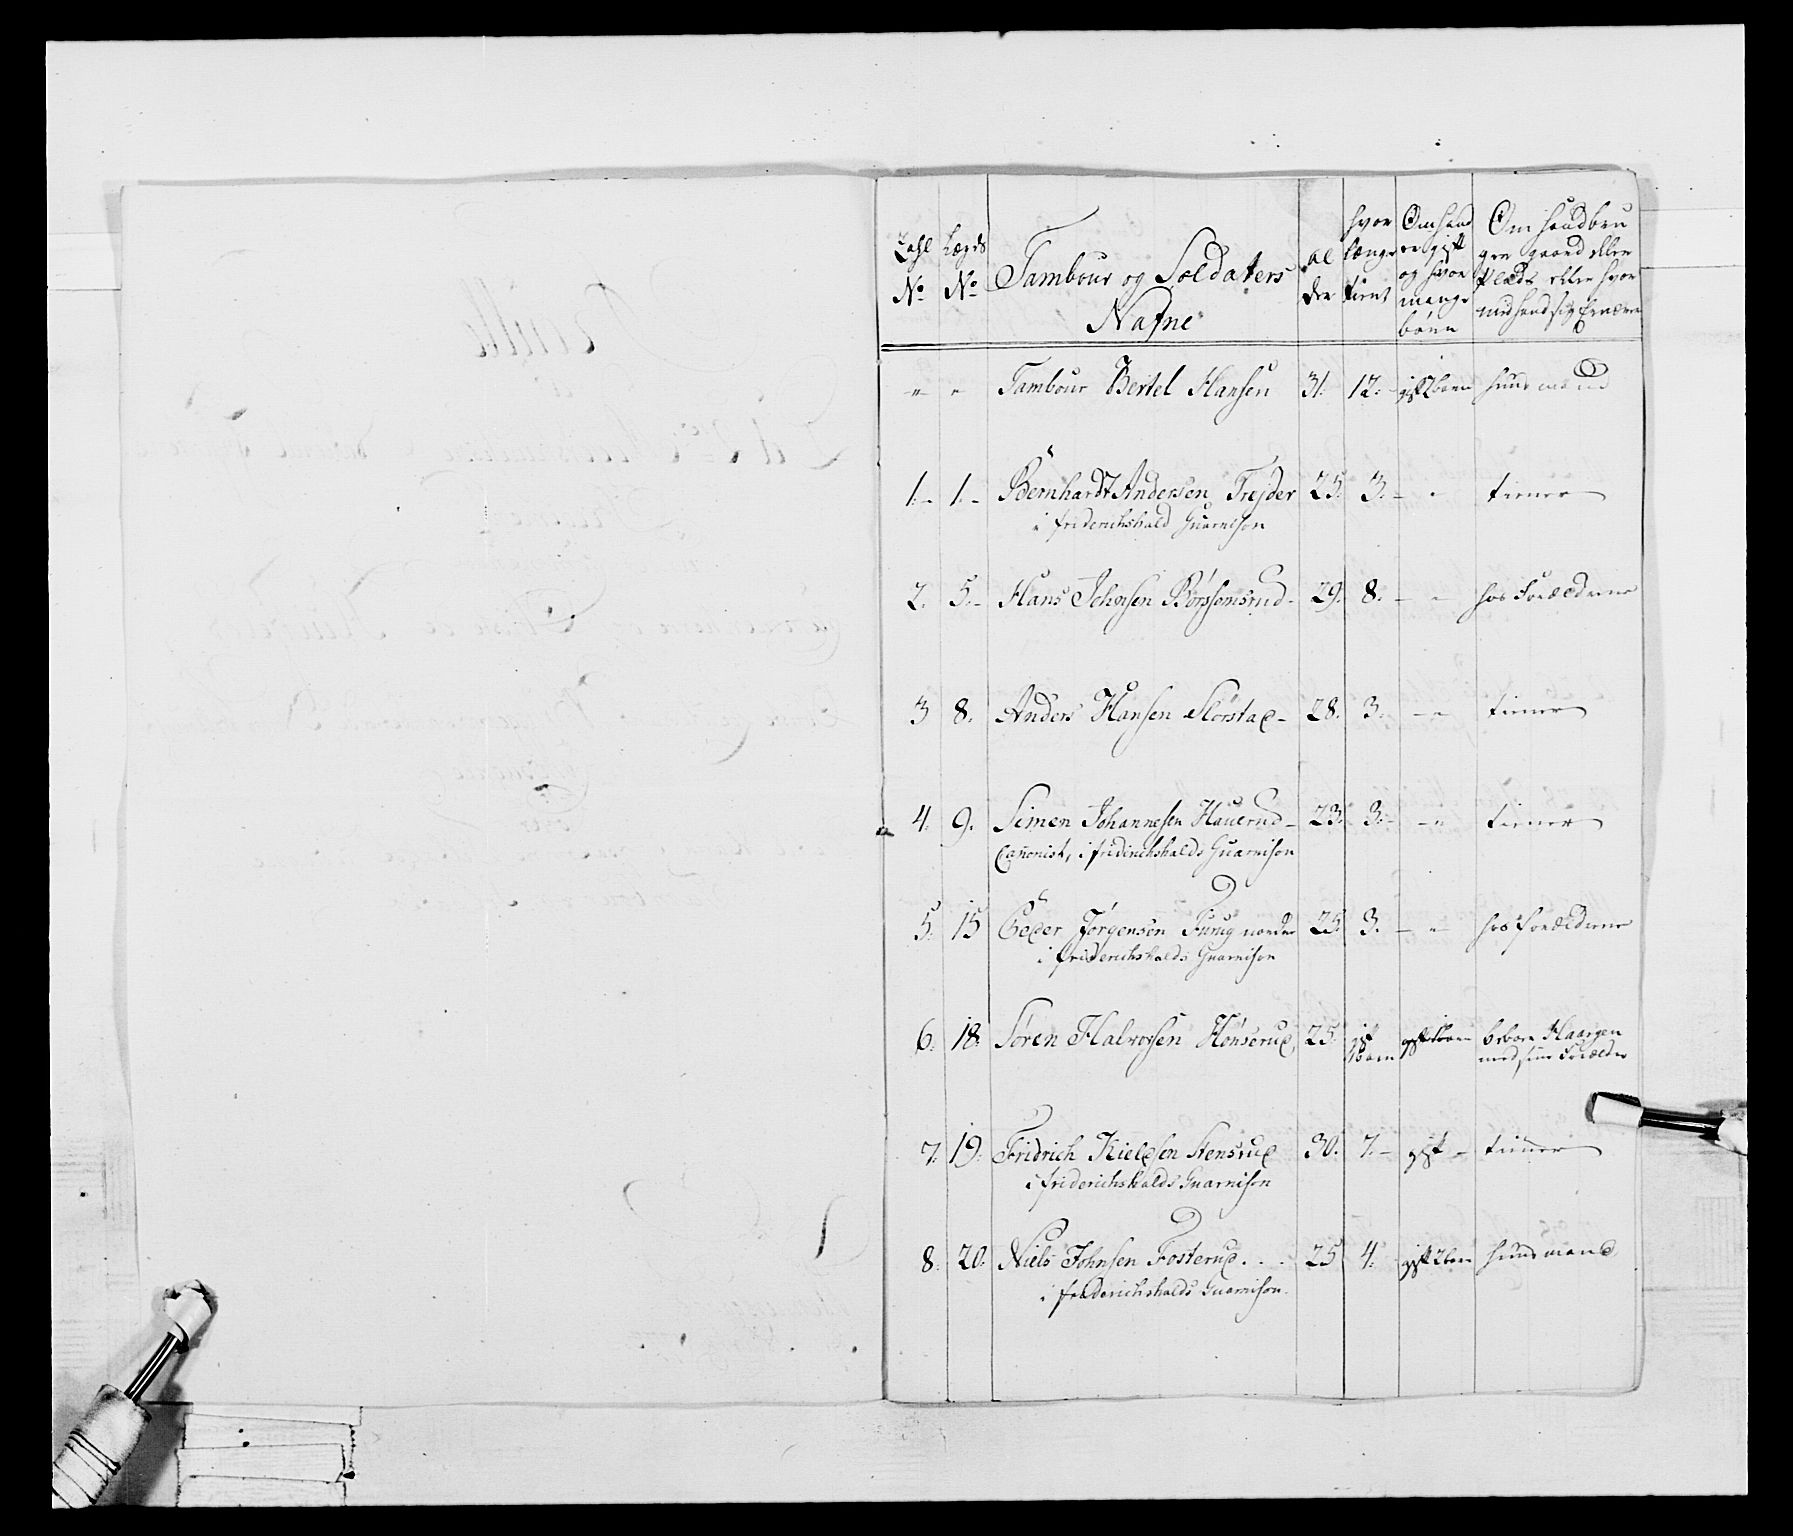 Zahl No
Legds No
Tambour og Soldaters Nafne
Al der
hvor længe tient
Om hand er gift og hvor mange børn
Om hand bru ger gaard eller Plads eller hvor med hand sig Ernærer
" " Tambour Bertel Hansen 31. 12. gift 2 børn huusmand
1. 1. Bernhardt Andersen Trejder 25. 3. " tiener
i friderichshald Guarnison
2. 5. Hans Johnsen Børssensrud 29. 8. " hos Forældrene
3 8. Anders Hansen Slørstad 28. 3. " tiener
4. 9. Simen Johannesen Hauerud 23. 3. " tiener
Canonist, i friderichshalds Guarnison
5. 15 Peder Jørgensen Furug nordre 25. 3. " hos forældrene
i friderichshalds Guarnison
6. 18. Søren Halvorsen Hønserud 25. gift 1 barn gift 1 barn beboer Haargen
med sine Forælder
7. 19. Fridrich Kieldsen Stensrud 30. 7. gift tiener
i friderichshalds Guarnison
8. 20. Niels Johnsen Fosterud 25 4. gift 2 børn huusmand
i friderichshalds Guarnison